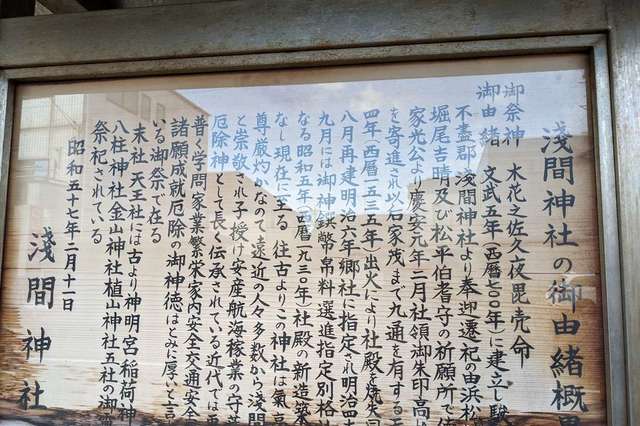 淺間神社の御由緒概
御祭神 木花之佐久夜毘売命
御由緒 文武五年(西暦七〇〇年)に建立し駿
不盡郡淺間神社より奉迎遷祀の由浜松
堀尾吉晴及び松平伯耆守の祈願所で徳
家光公より慶安元年二月社領御朱印高
を寄進され以后家茂まで九通を有する天
四年(西暦一五三五年)出火により社殿を焼失同
八月再建明治六年郷社に指定され明治四
九月には御神饌幣帛料選進指定別格
なる昭和五年(西暦一九三〇年)社殿の新造築
なし現在に至る 往古よりこの神社は氣高
尊厳灼かなので遠近の人々多数から淺間
と崇敬され子授け安産航海稼業の守護
厄除神として長く伝承されている近代では
普く学問家業繁栄家内安全交通安全
諸願成就厄除の御神徳はとみに厚いと言
いる御祭で在る
末社天王社には古より神明宮稲荷神
八柱神社金山神社植山神社五社の御
祭祀されている
昭和五十七年二月十一日
淺間神社